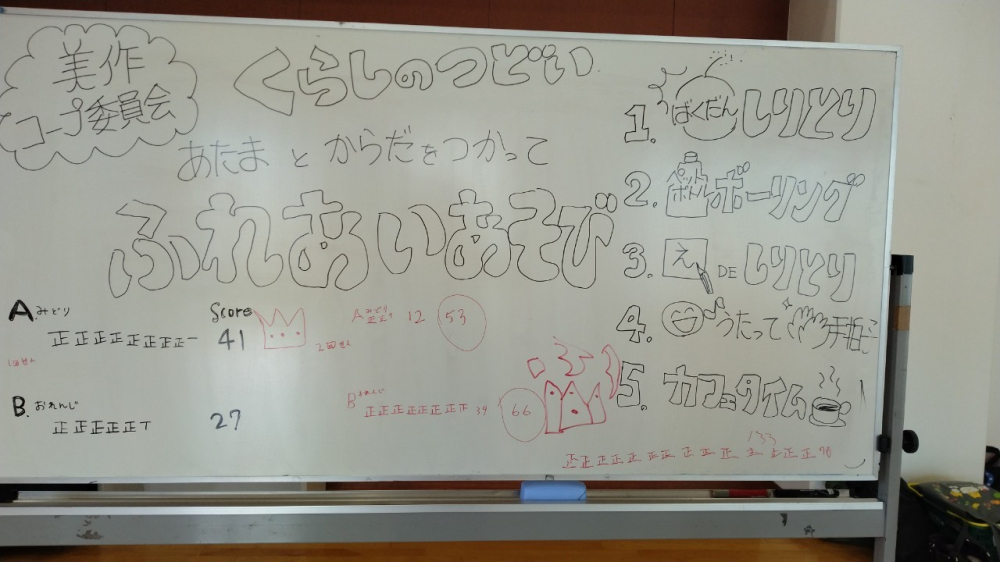 美作
コープ委員会
くらしのつどい
あたまとからだをつかって
ふれあいあそび
1. ばくだんしりとり
2. ペットボトルボーリング
3. え DE しりとり
4. うたって手拍子
5. カフェタイム
A みどり
Score
正正正正正正正正一
41
1回せん
A みどり
12
53
2回せん
B. おれんじ
正正正正正丅
27
B おれんじ
正正正正正正正正
39
66
133